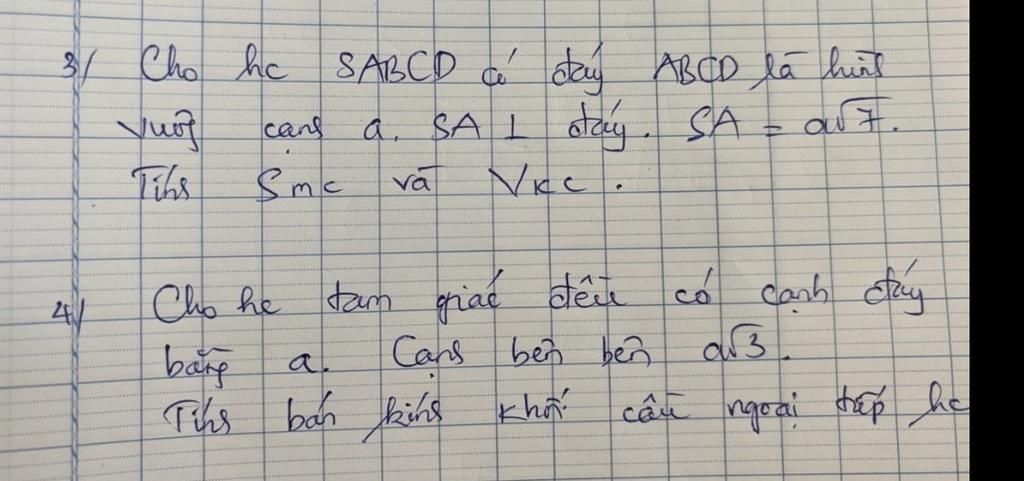 3/ Cho hc SABCD có đáy ABCD là hình
vuông cạnh a. SA ⊥ đáy. SA = a√7.
Tính Smc và Vkc.
4/ Cho hc tam giác đều có cạnh đáy
bằng a. Cạnh bên bên a√3.
Tính bán kính khối cầu ngoại tiếp hc